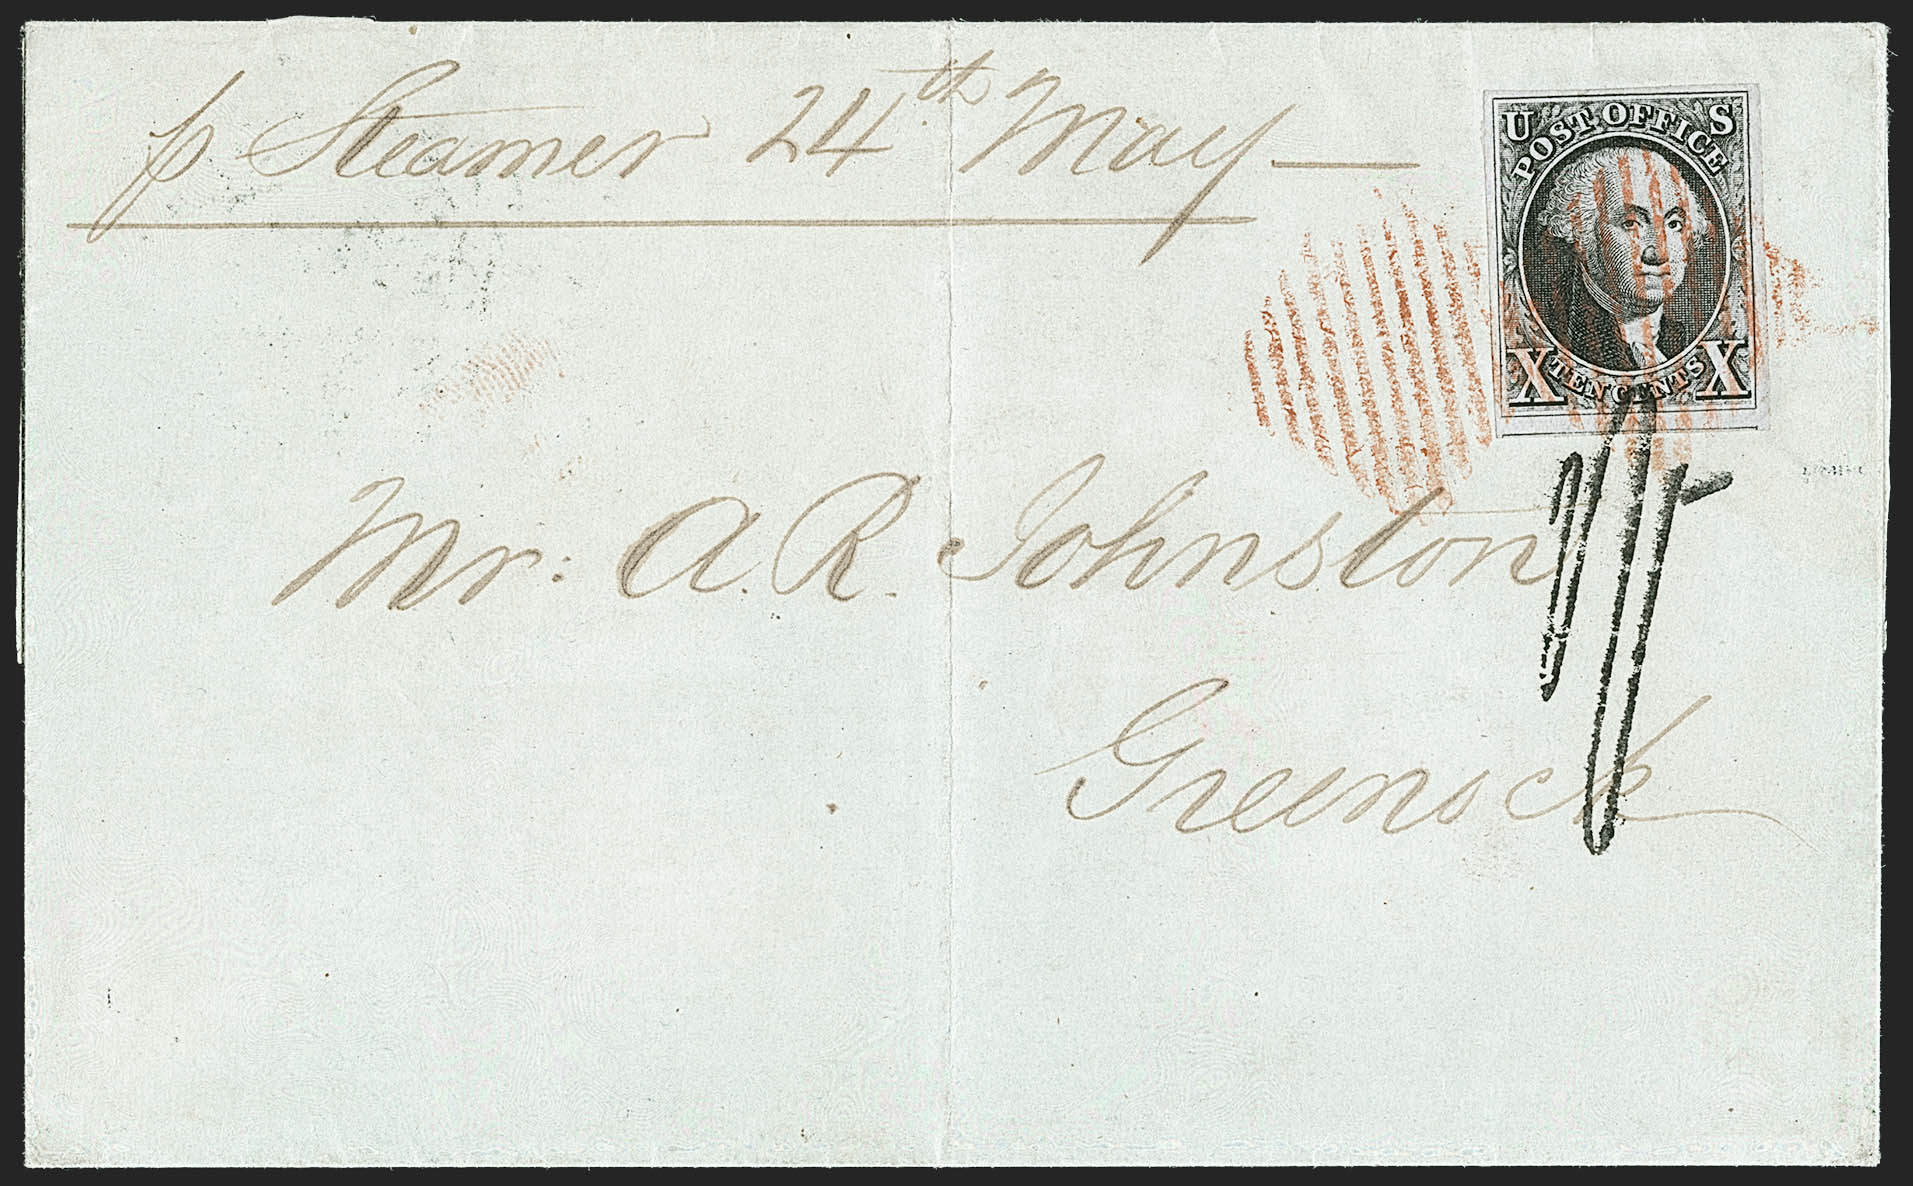 p Steamer 24th May —
U S
POST OFFICE
X TEN CENTS X
Mr. A. R. Johnston
Greenock